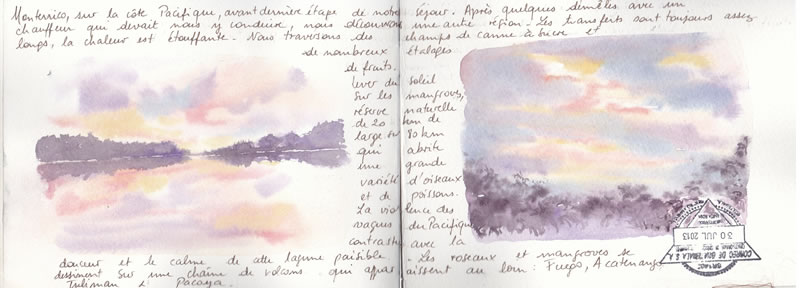 Monterrico, sur la côte Pacifique, avant dernière étape de notre séjour. Après quelques démêlés avec un
chauffeur qui devait nous y conduire, nous découvrons une autre région. Les transferts sont toujours assez
longs, la chaleur est étouffante. Nous traversons des champs de canne à sucre et
de nombreux étalages
de fruits.
Lever du soleil
sur les mangroves,
réserve naturelle
de 20 km de
large sur 80 km
qui abrite
une grande
variété d'oiseaux
et de poissons.
La violence des
vagues du Pacifique
contraste avec la
douceur et le calme de cette lagune paisible. Les roseaux et mangroves se
dessinent sur une chaîne de volcans qui apparaissent au loin : Fuego, Acatenango
Tuliman et Pacaya.
30 JUL 2013
CORREO DE GUATEMALA S.A.